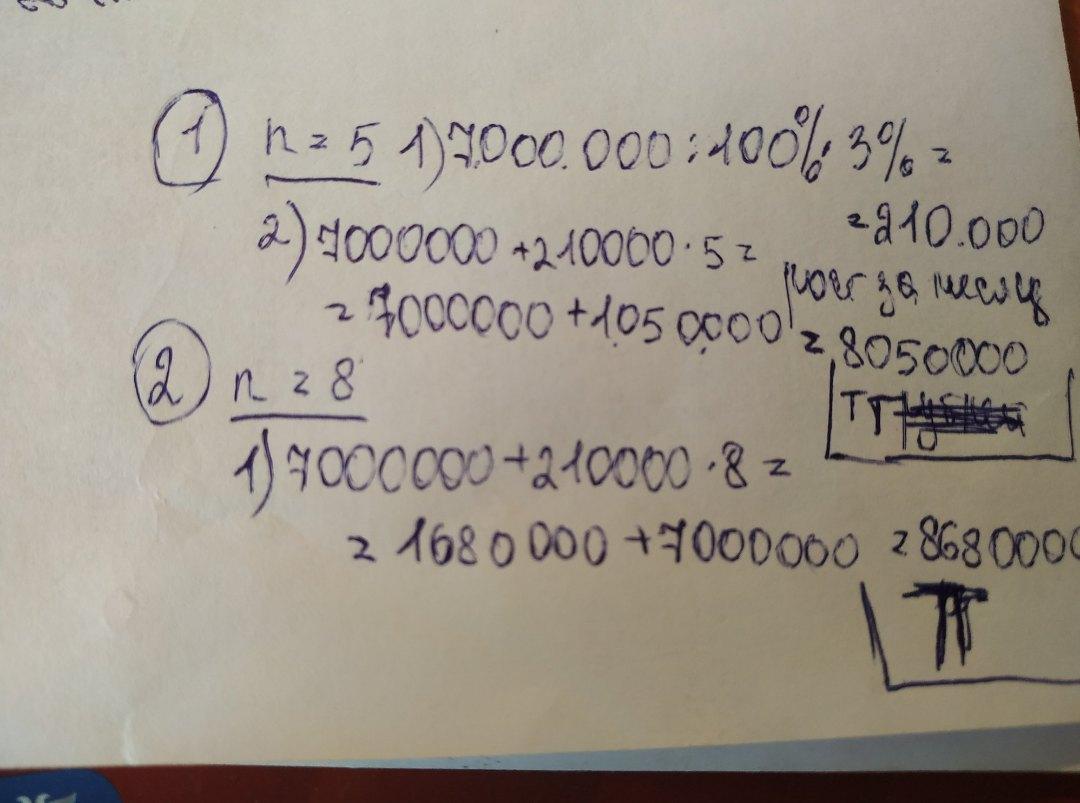 ① n = 5 1) 7.000.000 : 100% · 3% =
= 210.000
за месяц
2) 7000000 + 210000 · 5 =
= 7000000 + 1050000 = 8050000
② n = 8
1) 7000000 + 210000 · 8 =
= 1680000 + 7000000 = 8680000